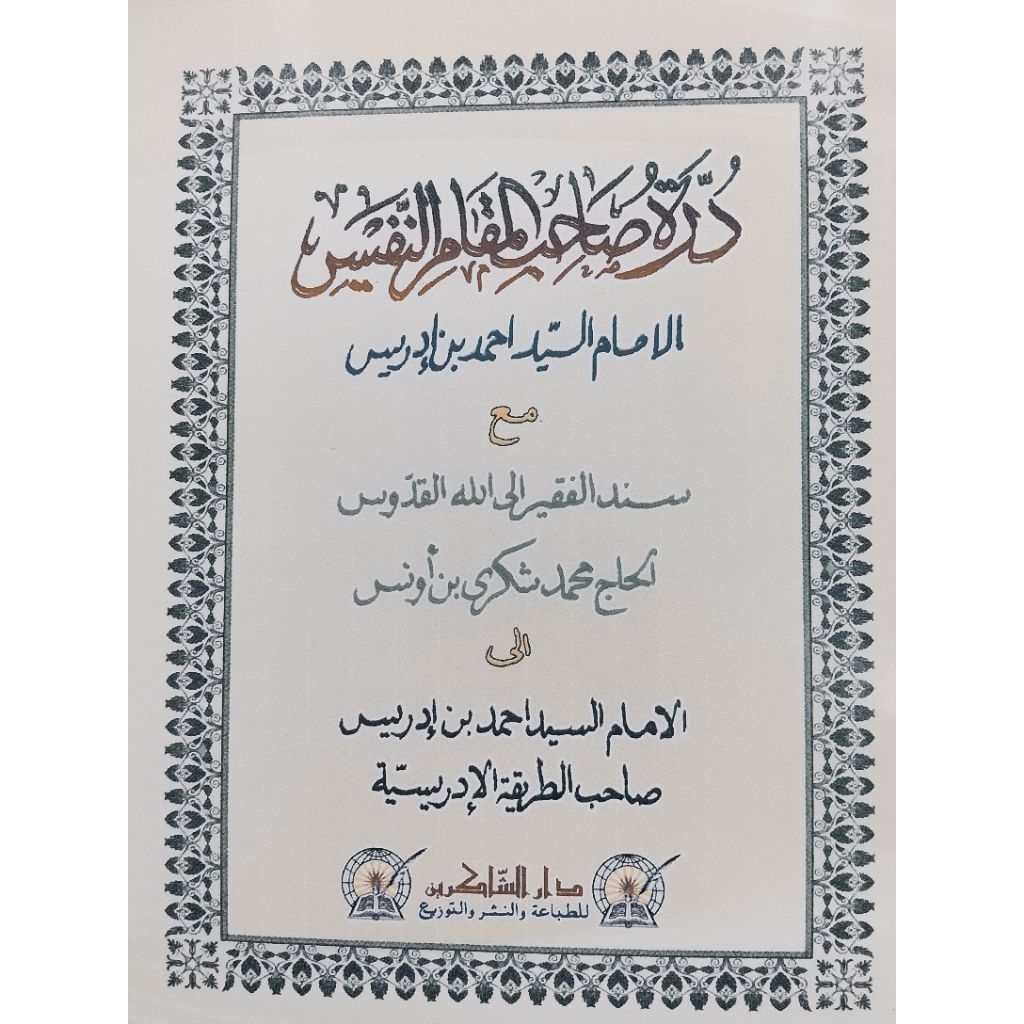 دُرّة صَاحِب المقام النَّفيس
الامام السيّد احمد بن إدريس
مع
سند الفقير الى الله القدّوس
الحاج محمد شكري بن أونس
الى
الامام السيد احمد بن إدريس
صاحب الطريقة الإدريسيّة
دار الشّاكرين
للطباعة والنشر والتوزيع